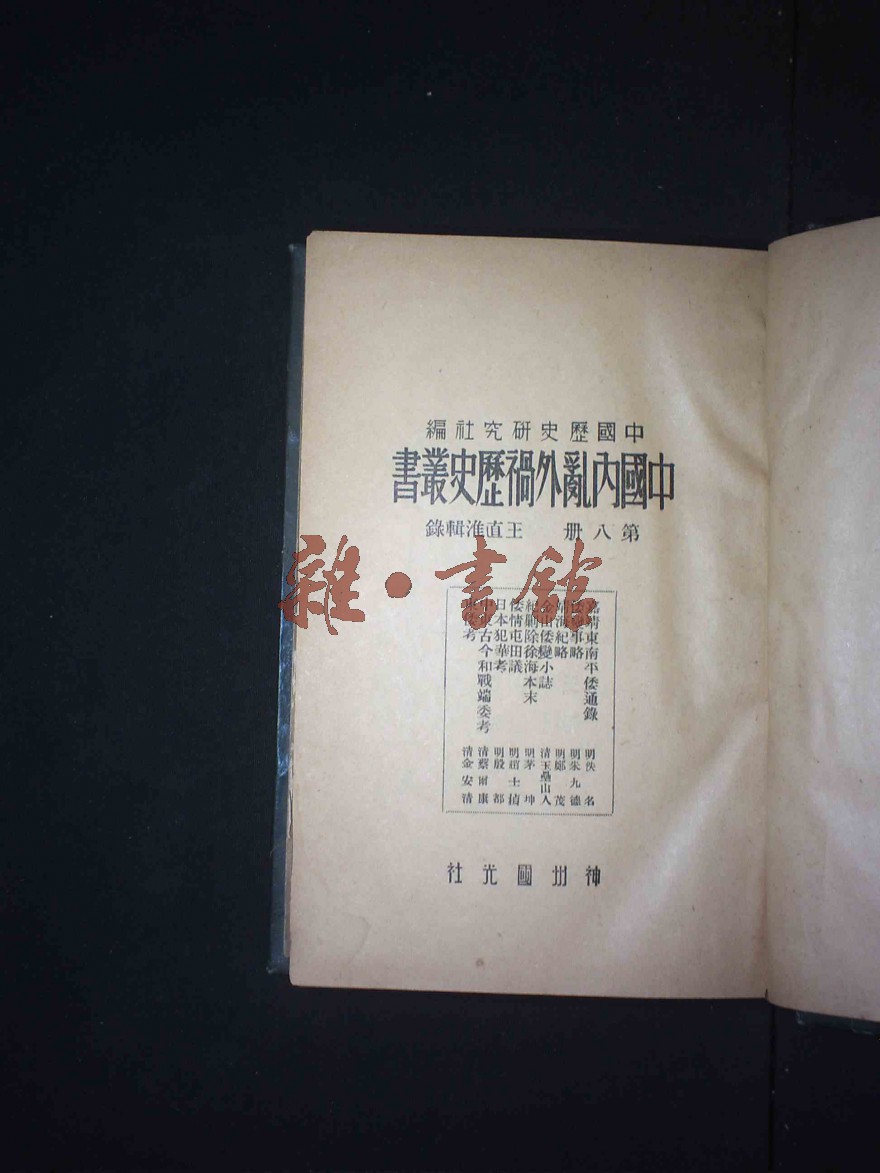 中國歷史研究社編
中國內亂外禍歷史叢書
第八册　王直淮輯錄
嘉靖東南平倭通錄　明佚名
倭變事略　明朱九德
靖海紀略　明鄭茂
金山倭變小誌　清玉壘山人
紀剿除徐海本末　明茅坤
倭情屯田議　明趙士禎
日本犯華考　明殷都
中東古今和戰端委考　清蔡爾康
倭考　清金安清
神州國光社
雜·書館